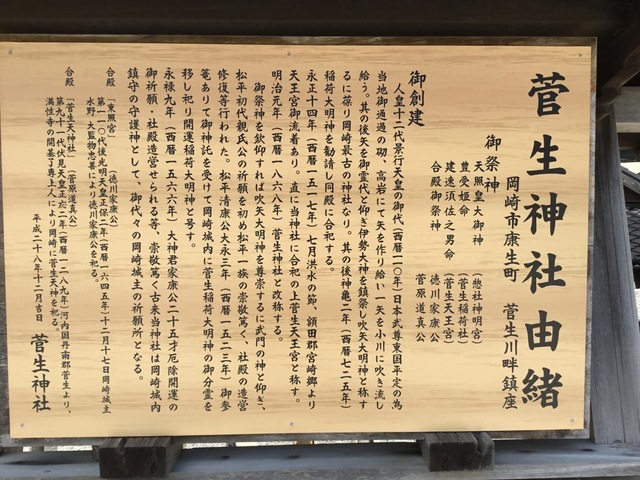 菅生神社由緒
岡崎市康生町　菅生川畔鎮座
御祭神
天照皇大御神　（惣社神明宮）
豊受姫命　（菅生稲荷社）
建速須佐之男命　（菅生天王宮）
合殿御祭神　徳川家康公
菅原道真公
御創建
人皇十二代景行天皇の御代（西暦一一〇年）日本武尊東国平定の為
当地御通過の砌、高岩にて矢を作り給い一矢を小川に吹き流し
給う。其の後矢を御霊代と仰ぎ伊勢大神を鎮祭し吹矢大明神と称す
るに葆り岡崎最古の神社なり。其の後神亀二年（西暦七二五年）
稲荷大明神を勧請し同殿に合祀する。
永正十四年（西暦一五一七年）七月洪水の節、額田郡宮崎郷より
天王宮御流着あり。直に当神社に合祀の上菅生天王宮と称す。
明治元年（西暦一八六八年）菅生神社と改称する。
御祭神を欽仰すれば吹矢大明神を尊崇するに武門の神と仰ぎ、
松平初代親氏公の祈願を初め松平一族の崇敬篤く、社殿の造営
修復等行われた。松平清康公大永三年（西暦一五二三年）御参
篭ありて御神託を受けて岡崎城内に菅生稲荷大明神の御分霊を
移し祀り開運稲荷大明神と号す。
永禄九年（西暦一五六六年）大神君家康公二十五才厄除開運の
御祈願・社殿造営せられる等、崇敬篤く古来当神社は岡崎城内
鎮守の守護神として、御代々の岡崎城主の祈願所となる。
合殿（東照宮）（徳川家康公）
第一一〇代後光明天皇正保二年（西暦一六四五年）十二月十七日岡崎城主
水野大監物忠善により徳川家康公を祀る。
合殿（菅生天神社）（菅原道真公）
第九十一代伏見天皇正応二年（西暦一二八九年）河内国丹南郡菅生より、
満性寺の開基了専上人により岡崎に菅生天神を祀る。
平成二十八年十二月吉日
菅生神社